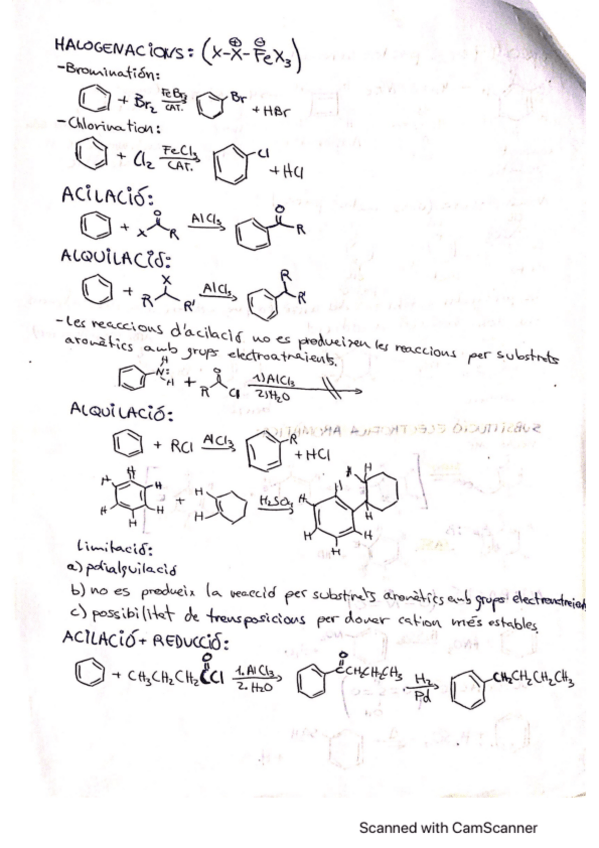 HALOGENACIONS: (X-X⊕-Fe⊖X₃)
-Bromination:
+ Br₂ FeBr₃ CAT. Br + HBr
-Chlorination:
+ Cl₂ FeCl₃ CAT. Cl + HCl
ACILACIÓ:
+ X O R AlCl₃ O R
ALQUILACIÓ:
+ X R R' AlCl₃ R R'
-Les reaccions d'acilació no es produeixen les reaccions per substrats
aromàtics amb grups electroatraients.
N: H H + R O Cl 1) AlCl₃ 2) H₂O
ALQUILACIÓ:
+ RCl AlCl₃ R + HCl
H H H H H H + H H H₂SO₄ H H H H H H H
Limitació:
a) polialquilació
b) no es produeix la reacció per substrats aromàtics amb grups
c) possibilitat de transposicions per donar cation més estables.
ACILACIÓ + REDUCCIÓ:
+ CH₃CH₂CH₂CCl O 1. AlCl₃ 2. H₂O O CCH₂CH₂CH₃ H₂ Pd CH₂CH₂CH₂CH₃
Scanned with CamScanner